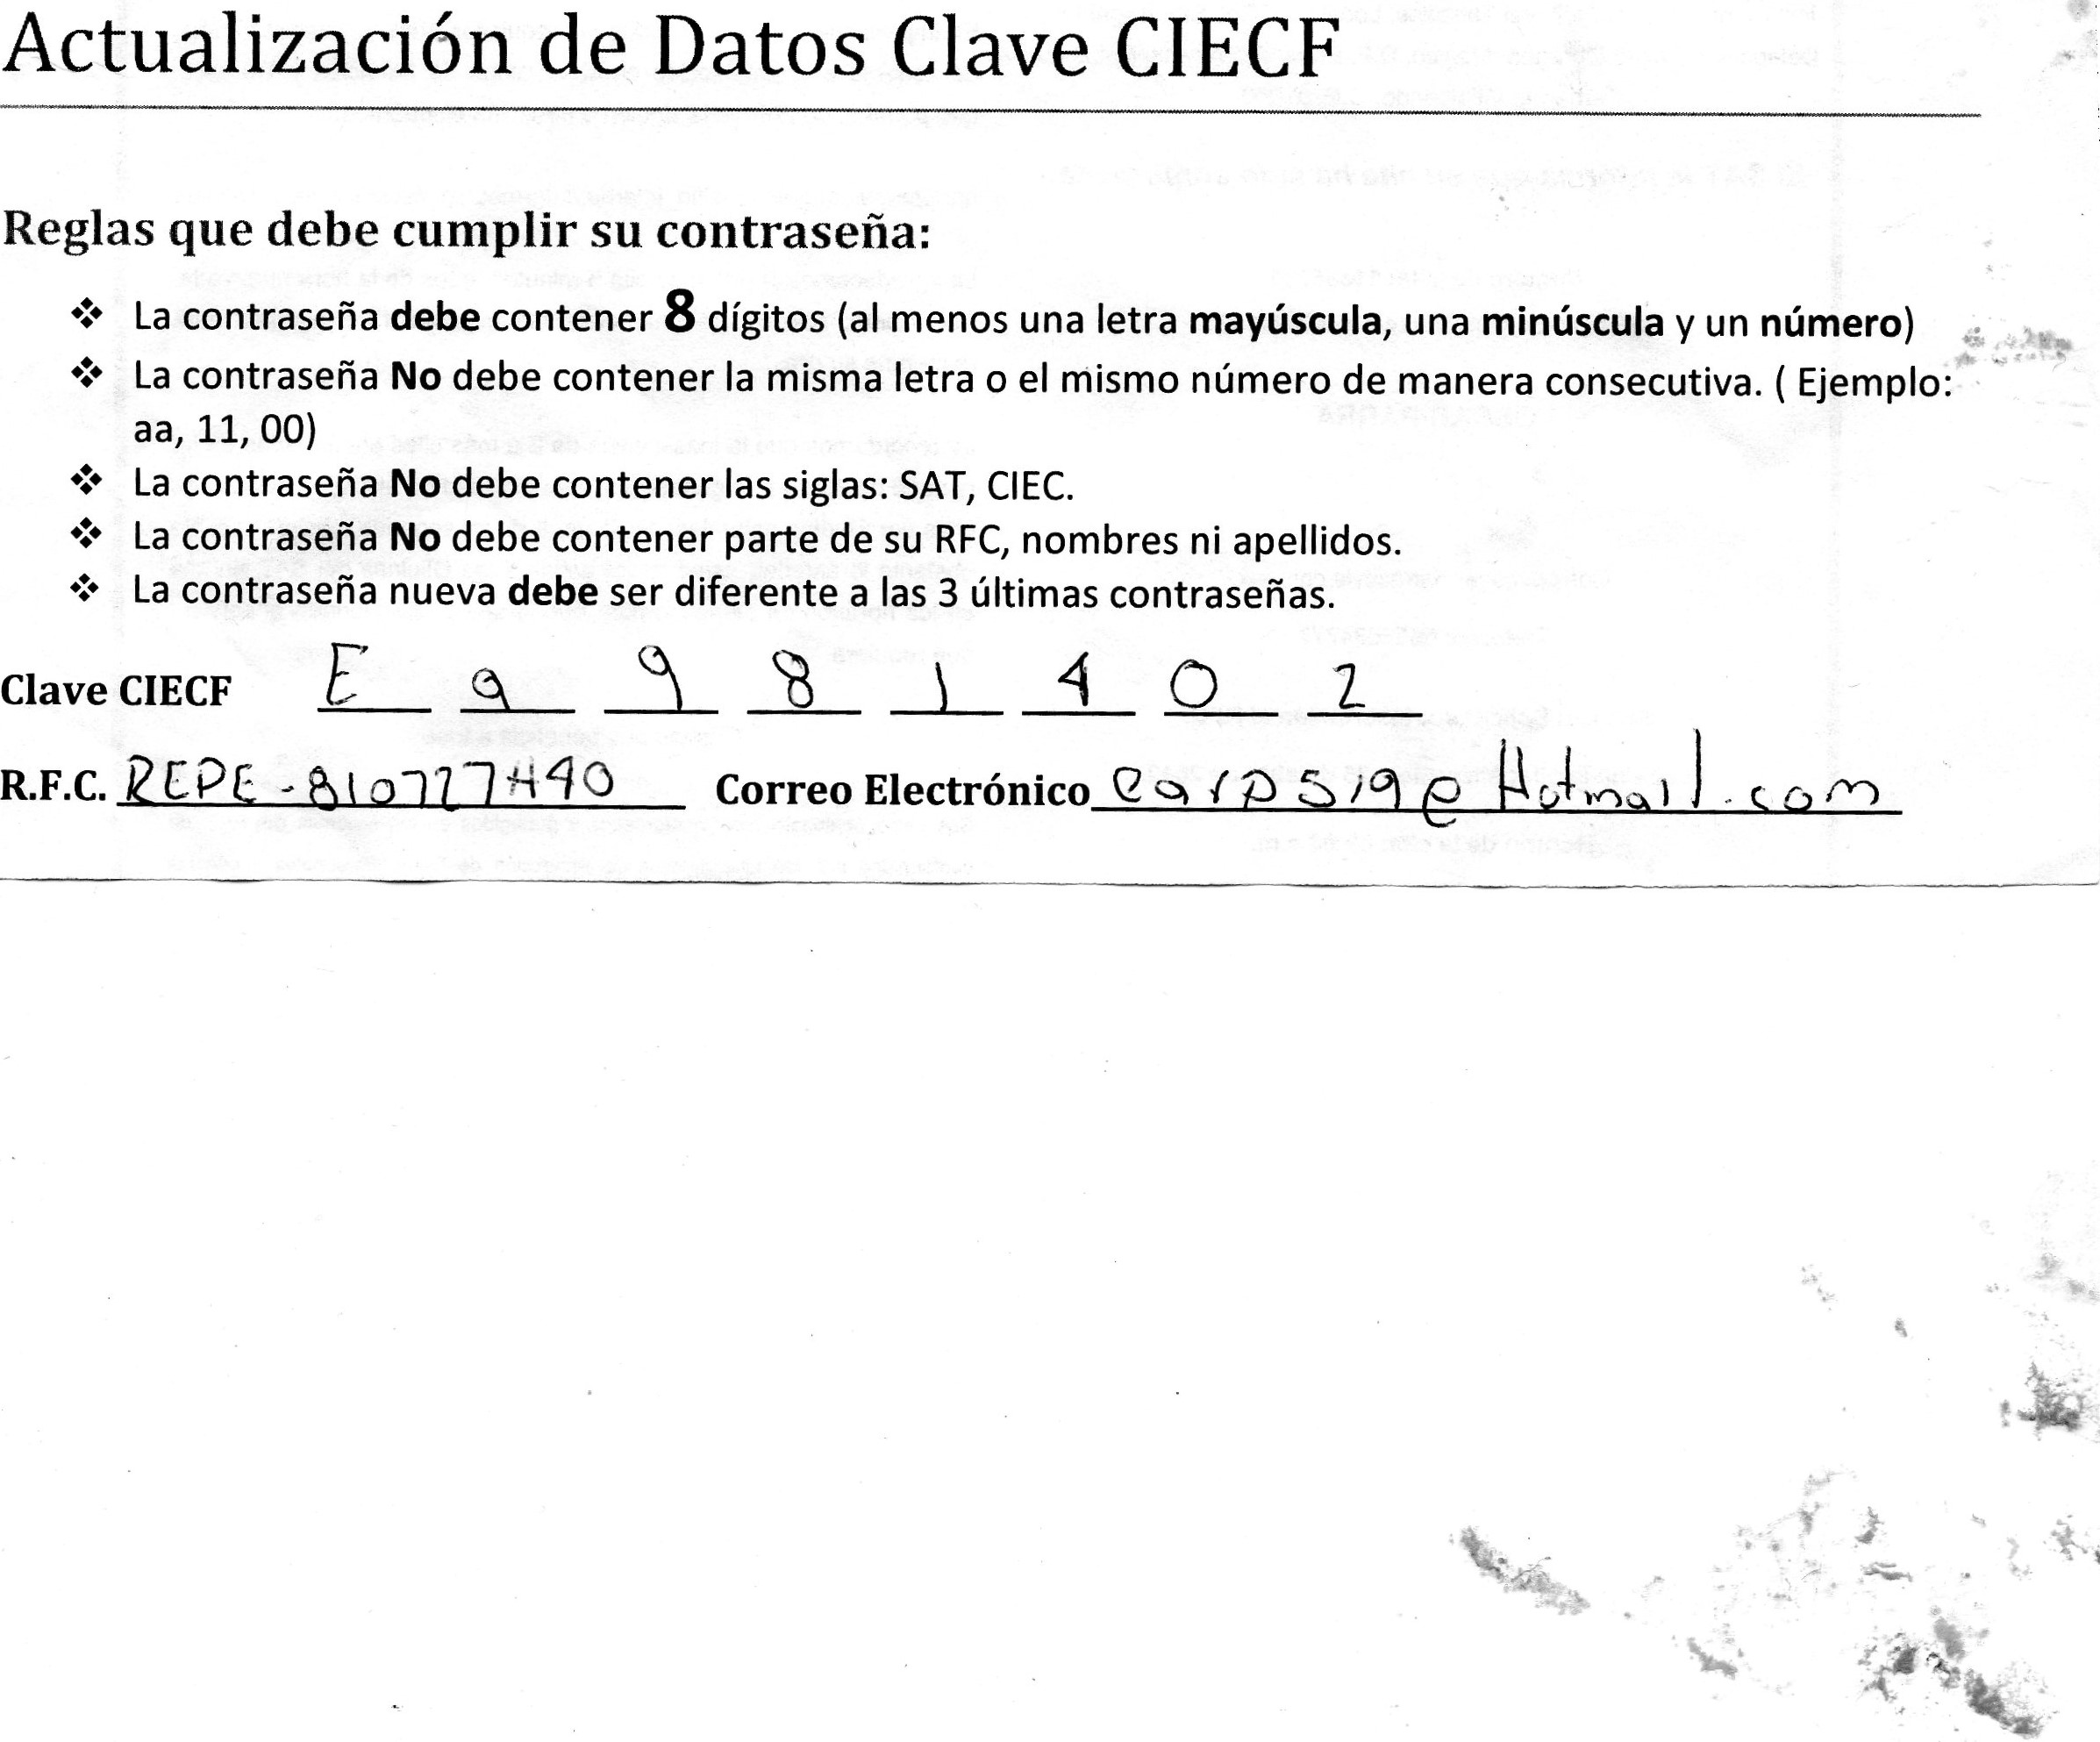 Actualización de Datos Clave CIECF
Reglas que debe cumplir su contraseña:
❖ La contraseña debe contener 8 dígitos (al menos una letra mayúscula, una minúscula y un número)
❖ La contraseña No debe contener la misma letra o el mismo número de manera consecutiva. ( Ejemplo:
aa, 11, 00)
❖ La contraseña No debe contener las siglas: SAT, CIEC.
❖ La contraseña No debe contener parte de su RFC, nombres ni apellidos.
❖ La contraseña nueva debe ser diferente a las 3 últimas contraseñas.
Clave CIECF E a 9 8 1 4 0 2
R.F.C. REPE-810727H40 Correo Electrónico earpsige Hotmail.com